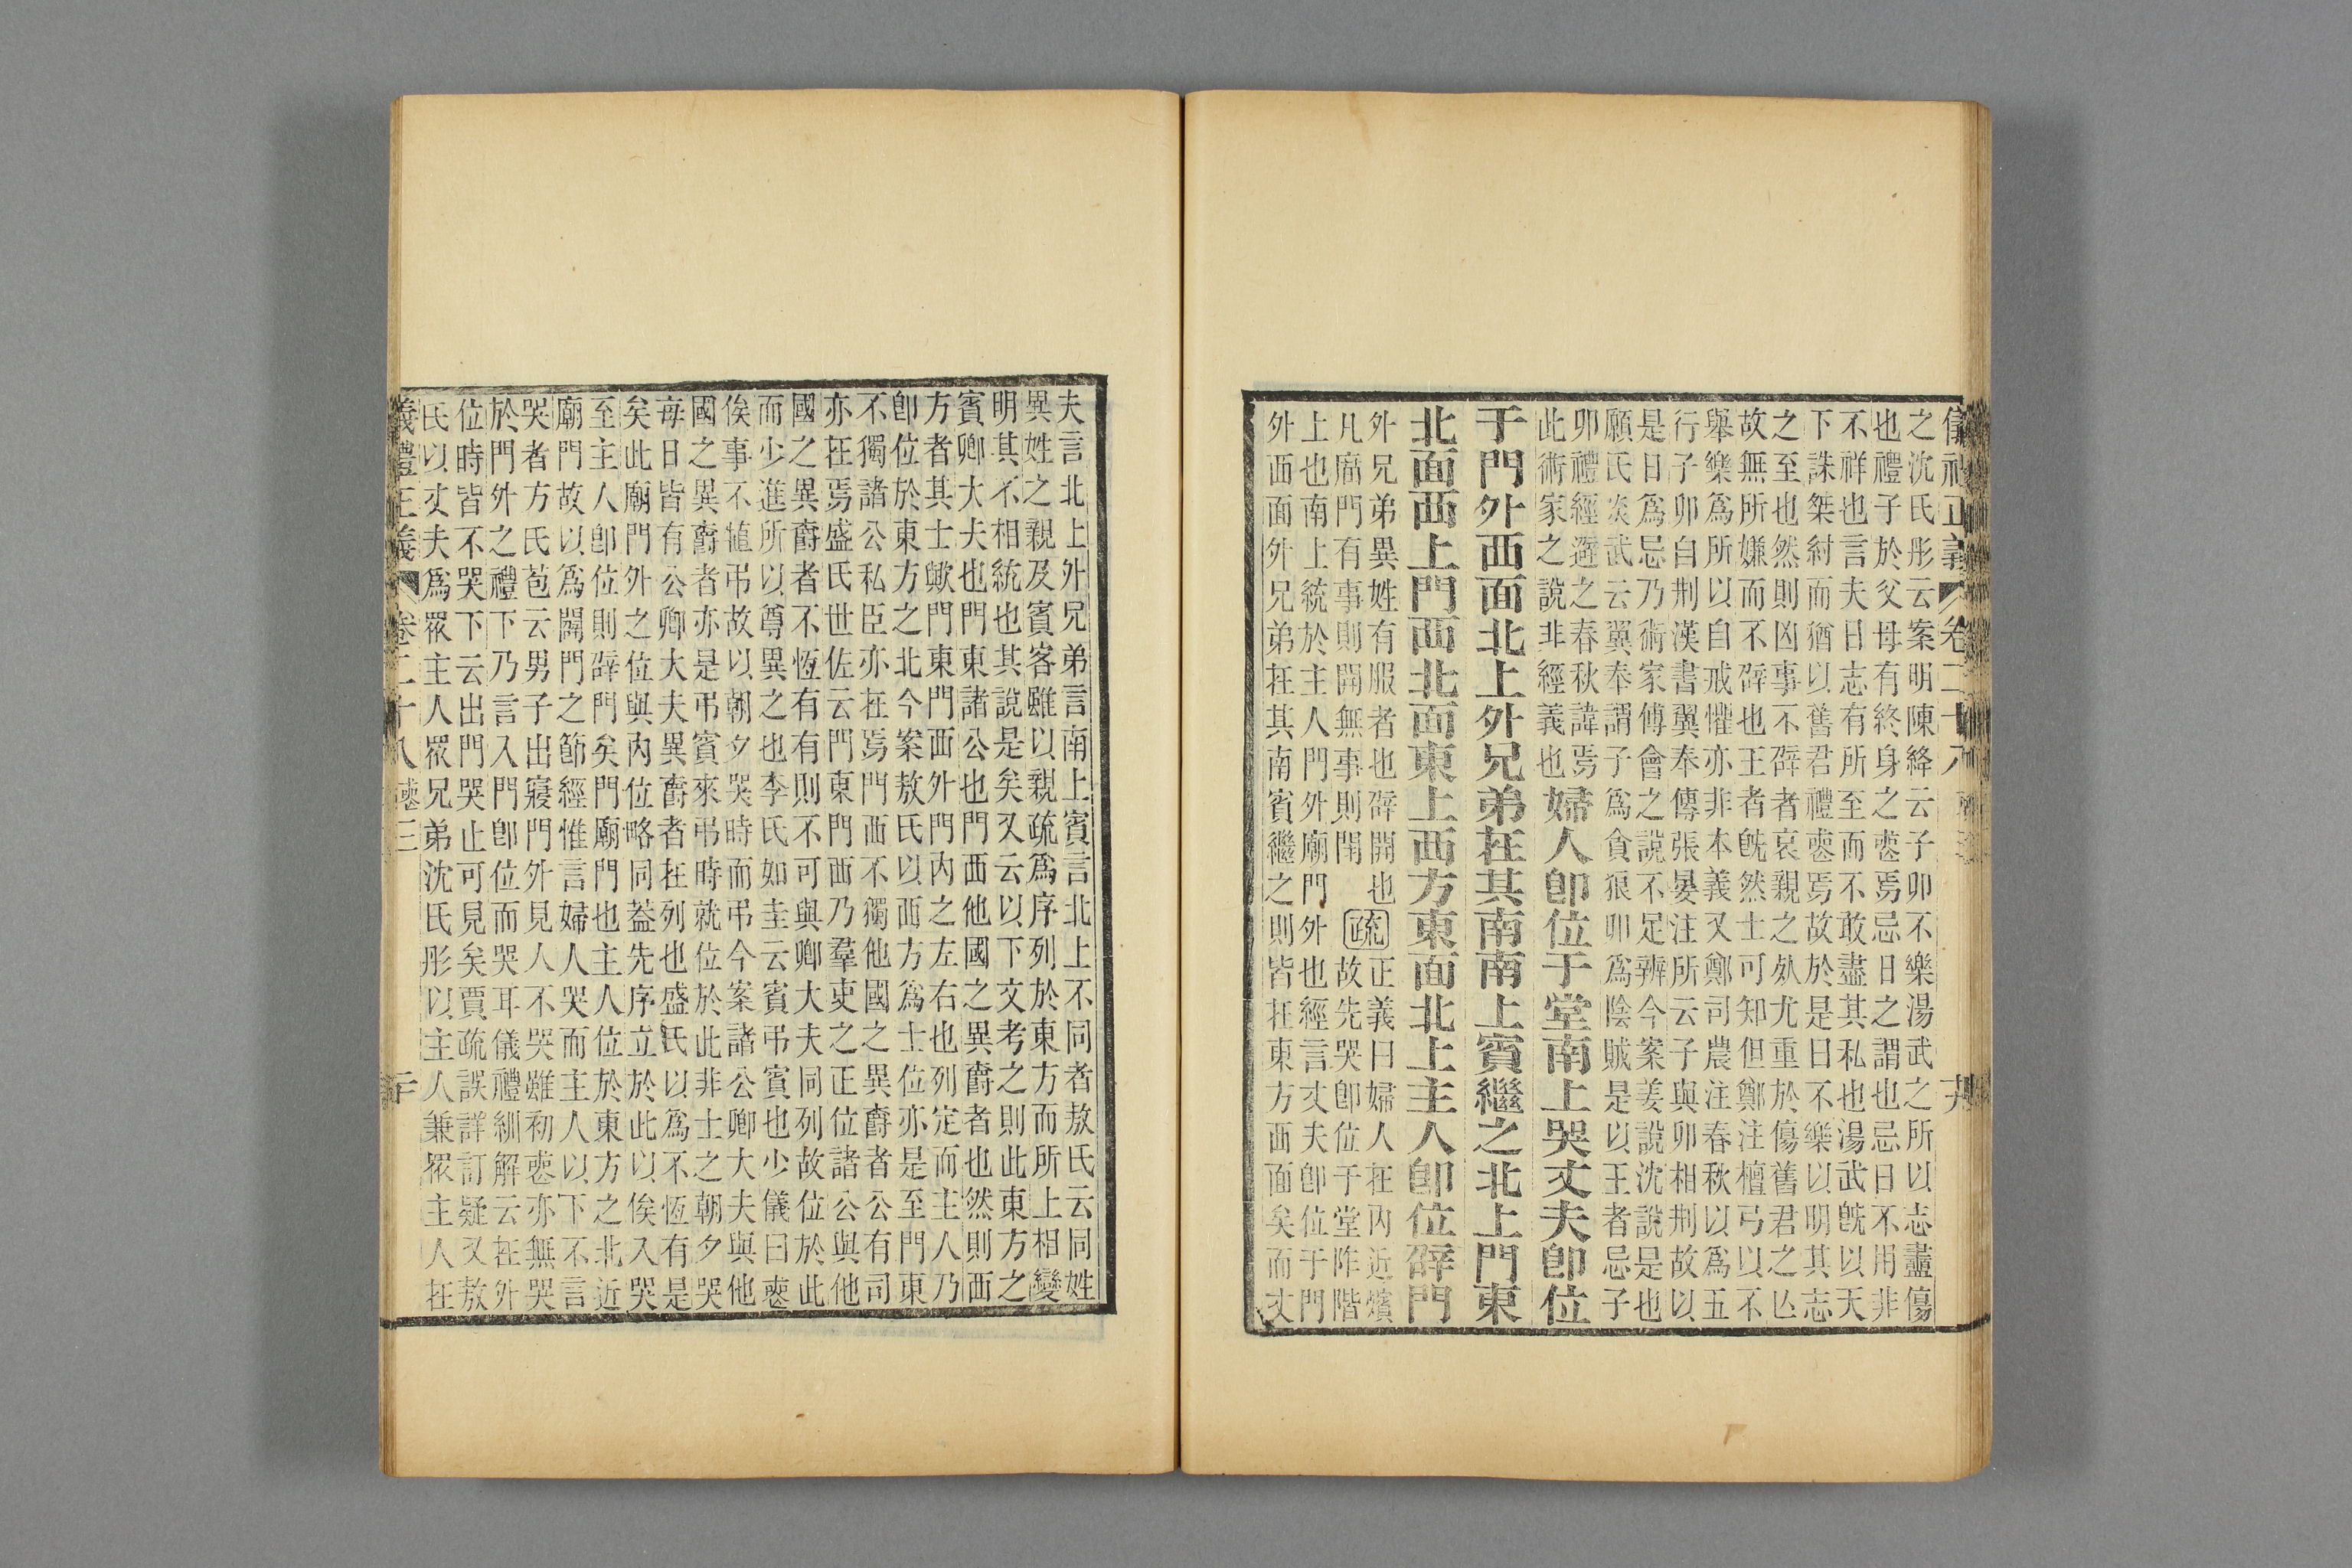 儀禮正義 卷二十八 喪三 十九
之沈氏彤云案明陳絳云子卯不樂湯武之所以志盡傷
也禮子於父母有終身之喪焉忌日之謂也忌日不用非
不祥也言夫日志有所至而不敢盡其私也湯武旣以天
下誅桀紂而猶以舊君禮喪焉故於是日不樂以明其志
之至也然則凶事不辟者哀親之死尤重於傷舊君之亾
故無所嫌而不辟也王者旣然士可知但鄭注檀弓以不
舉樂爲所以自戒懼亦非本義又鄭司農注春秋以爲五
行子卯自刑漢書翼奉傳張晏注所云子與卯相刑故以
是日爲忌乃術家傅會之說不足辨今案姜說沈說是也
顧氏炎武云翼奉謂子爲貪狼卯爲陰賊是以王者忌子
卯禮經避之春秋諱焉
此術家之說非經義也
婦人卽位于堂南上哭丈夫卽位
于門外西面北上外兄弟在其南南上賓繼之北上門東
北面西上門西北面東上西方東面北上主人卽位辟門
外兄弟異姓有服者也辟開也
凡廟門有事則開無事則閉
疏
正義曰婦人在內近殯
故先哭卽位于堂阼階
上也南上統於主人門外廟門外也經言丈夫卽位于門
外西面外兄弟在其南賓繼之則皆在東方西面矣而丈
夫言北上外兄弟言南上賓言北上不同者敖氏云同姓
異姓之親及賓客雖以親疏爲序列於東方而所上相變
明其不相統也其說是矣又云以下文考之則此東方之
賓卿大夫也門東諸公也門西他國之異爵者也然則西
方者其士歟門東門西外門內之左右也列定而主人乃
卽位於東方之北今案敖氏以西方爲士位亦是至門東
不獨諸公私臣亦在焉門西不獨他國之異爵者公有司
亦在焉盛氏世佐云門東門西乃羣吏之正位諸公與他
國之異爵者不恆有有則不可與卿大夫同列故位於此
而少進所以尊異之也李氏如圭云賓弔賓也少儀曰喪
俟事不犆弔故以朝夕哭時而弔今案諸公卿大夫與他
國之異爵者亦是弔賓來弔時就位於此非士之朝夕哭
每日皆有公卿大夫異爵者在列也盛氏以爲不恆有是
矣此廟門外之位與內位略同蓋先序立於此以俟入哭
至主人卽位則辟門矣門廟門也主人位於東方之北近
廟門故以爲闢門之節經惟言婦人哭而主人以下不言
哭者方氏苞云男子出寢門外見人不哭雖初喪亦無哭
於門外之禮下乃言入門卽位而哭耳儀禮糾解云在外
位時皆不哭下云出門哭止可見矣賈疏誤詳訂疑又敖
氏以丈夫爲衆主人衆兄弟沈氏彤以主人兼衆主人在
儀禮正義 卷二十八 喪三 二十